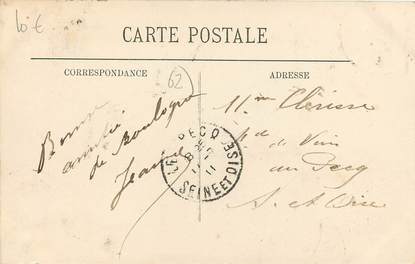 10 €
CARTE POSTALE
CORRESPONDANCE
ADRESSE
62
Bonne
amitié
de Boulogne
Jeanne
Mme Clérisse
Md de Vin
au Pecq
S. et Oise
LE PECQ
SEINE ET OISE
11